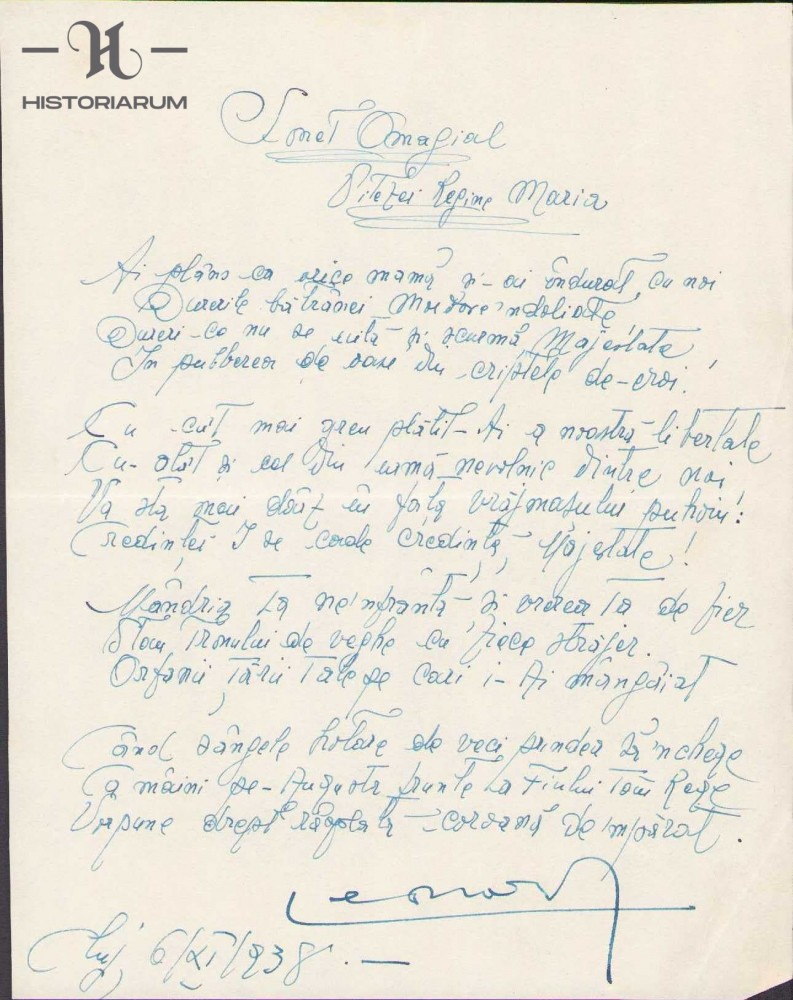 HISTORIARUM
Sonet Omagial
Vitezei Regine Maria
Ai plâns ca orice mamă și-ai îndurat, cu noi
Durerile bătrânei Moldove 'ndoliate,
Dureri-ce nu se uită-și scumpă, Majestate,
In pulberea de oase din criptele de-eroi!
Cu cât mai greu plătit-Ai a noastră libertate
Cu-atât și cel din urmă nevolnic dintre noi
Va sta mai dârz în fața vrăjmașului puhoiu!
Credinței I se cade credință, Majestate!
Mândria Ta neinfrântă și vrerea Ta de fier
Stau Tronului de veghe cu fiece străjer.
Orfanii Țării Tale pe cari i-Ai mângâiat
Când sângele hotare de veci prindea să 'nchege
Ca mâini pe-Augusta frunte La Fiului Tău Rege
Vor pune drept răsplată coroană de 'mpărat.
Cluj, 6/XI/938. —